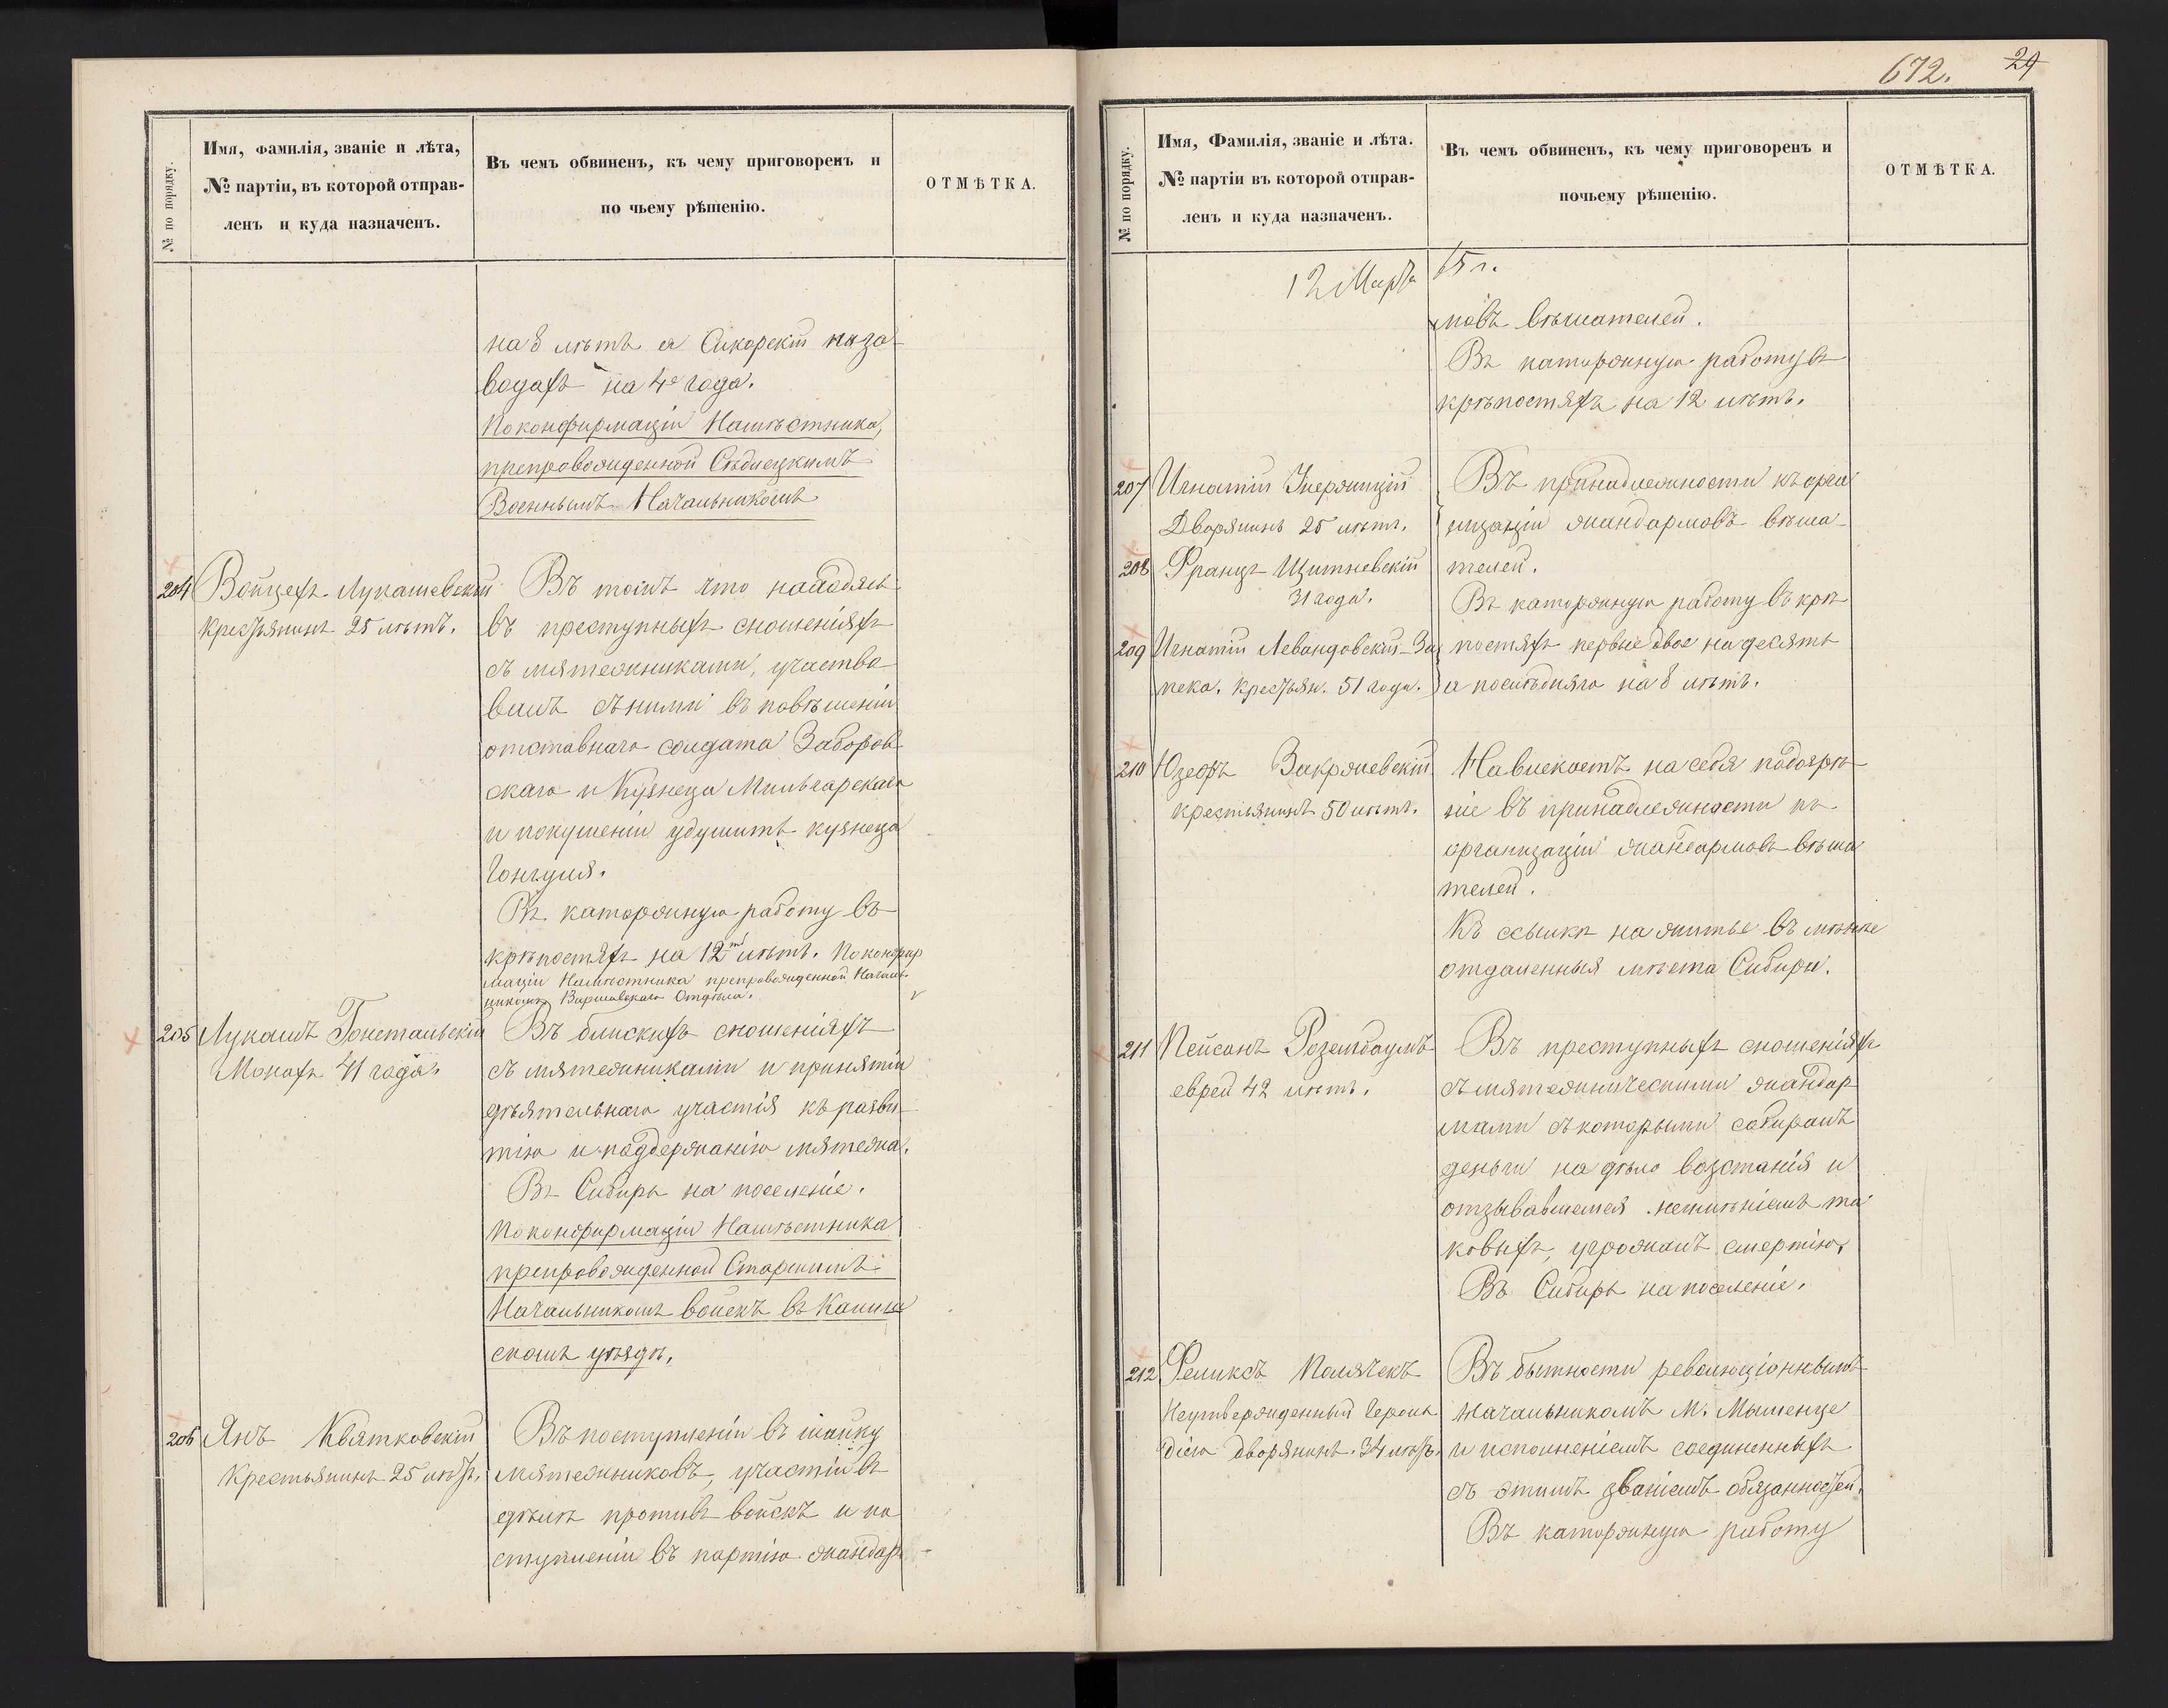 № по порядку.
Имя, фамилія, званіе и лѣта,
№ партіи, въ которой отправ-
ленъ и куда назначенъ.
Въ чемъ обвиненъ, къ чему приговоренъ и
по чьему рѣшенію.
ОТМѢТКА.
на 8 лѣтъ а Сикорскій на за-
водахъ на 4 года.
По конфирмаціи Намѣстника,
препровожденной Сѣдлецкимъ
Военнымъ Начальникомъ
204 Войцехъ Лукашевскій
Крестьянинъ 25 лѣтъ.
Въ томъ что находясь
въ преступныхъ сношеніяхъ
съ мятежниками, участво
валъ съ ними въ повѣшеніи
отставнаго солдата Заборов
скаго и Кузнеца Мильчарскаго
и покушеніи удушить кузнеца
Гонгуля.
Въ каторжную работу въ
крѣпостяхъ на 12 лѣтъ. По конфир
маціи Намѣстника препровожденной Началь
никомъ Варшавскаго Отдѣла.
205 Лукашъ
Монахъ 41 года.
Въ близкихъ сношеніяхъ
съ мятежниками и принятіи
дѣятельнаго участія къ разви
тію и поддержанію мятежа.
Въ Сибирь на поселеніе.
По конфирмаціи Намѣстника
препровожденной Старшимъ
Начальникомъ войскъ въ Калиш
скомъ уѣздѣ.
206 Янъ Квятковскій
Крестьянинъ 25 лѣтъ.
Въ поступленіи въ шайку
мятежниковъ, участіи въ
дѣлѣ противъ войскъ и по
ступленіи въ партію жандар
672. 29
№ по порядку.
Имя, Фамилія, званіе и лѣта.
№ партіи въ которой отправ-
ленъ и куда назначенъ.
Въ чемъ обвиненъ, къ чему приговоренъ и
почьему рѣшенію.
ОТМѢТКА.
12 Марта 65 г.
мовъ вѣшателей.
Въ каторжную работу въ
крѣпостяхъ на 12 лѣтъ.
207 Игнатій
Дворянинъ 25 лѣтъ.
208 Францъ Щитневскій
31 года.
209 Игнатій Левандовскій-За
пека. Крестьян. 51 года.
Въ принадлежности къ орга
низаціи жандармовъ вѣша-
телей.
Въ каторжную работу въ крѣ
постяхъ первые двое на десять
а послѣдняго на 8 лѣтъ.
210 Юзефъ Закржевскій
крестьянинъ 50 лѣтъ.
Навлекъ на себя подозрѣ-
ніе въ принадлежности къ
организаціи жандармовъ вѣша
телей.
Къ ссылкѣ на житье въ менѣе
отдаленныя мѣста Сибири.
211 Пейсахъ Розенбаумъ
еврей 42 лѣтъ.
Въ преступныхъ сношеніяхъ
съ мятежническими жандар
мами съ которыми собиралъ
деньги на дѣло возстанія и
отзывавшемся неимѣніемъ та
ковыхъ, угрожалъ смертію.
Въ Сибирь на поселеніе.
212 Феликсъ Полячекъ
Неутвержденный Героль
діею дворянинъ. 34 лѣтъ.
Въ бытности революціоннымъ
Начальникомъ М. Мышенце
и исполненіемъ соединенныхъ
съ этимъ званіемъ обязанностей.
Въ каторжную работу